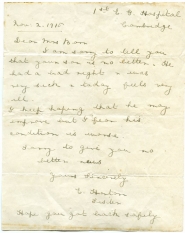 1st E. G. Hospital
Cambridge
Nov. 2. 1915
Dear Mrs
I am sorry to tell you
that your son is no better. He
had a bad night & is
very sick & today feels very
ill.
I keep hoping that he may
improve but I fear his
condition is worse
Sorry to give you no
better news
Yours sincerely
E.
Sister
Hope you got back safely